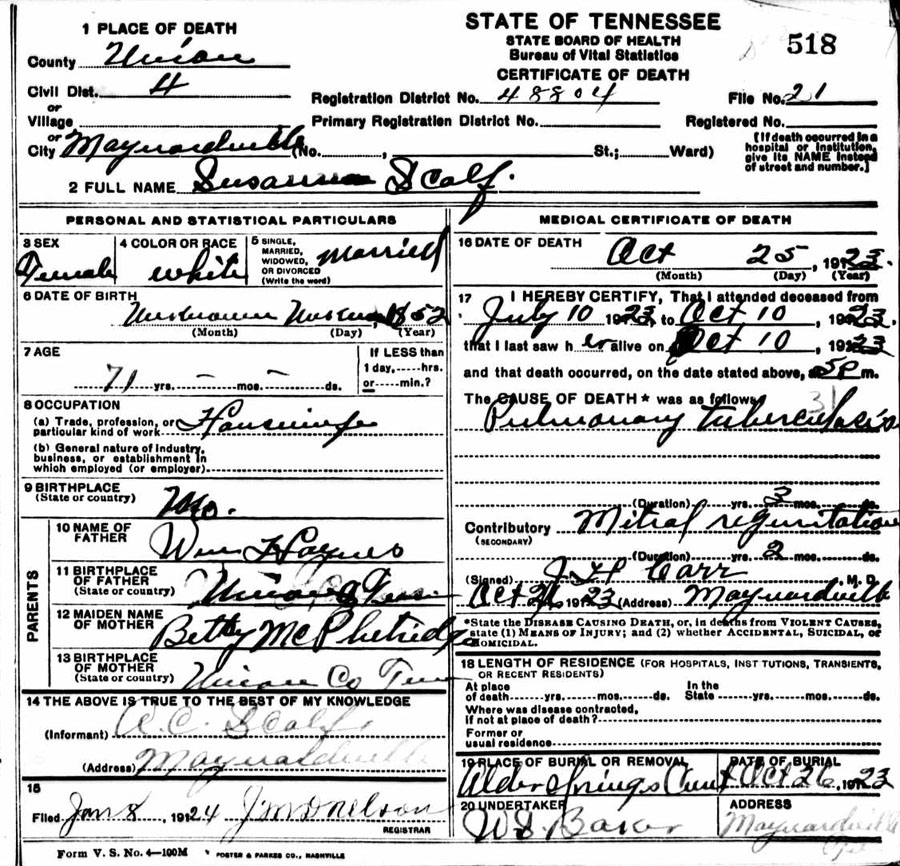 STATE OF TENNESSEE
STATE BOARD OF HEALTH
Bureau of Vital Statistics
CERTIFICATE OF DEATH
518
1 PLACE OF DEATH
County Union
Civil Dist. 4
or
Village
or
City Maynardville (No. , St.; Ward)
Registration District No. 48804 File No. 21
Primary Registration District No. Registered No.
[If death occurred in a
hospital or institution,
give its NAME instead
of street and number.]
2 FULL NAME Susanna Scalf.
PERSONAL AND STATISTICAL PARTICULARS
3 SEX
Female
4 COLOR OR RACE
white
5 SINGLE,
MARRIED,
WIDOWED,
OR DIVORCED
(Write the word)
Married
6 DATE OF BIRTH
Unknown Unknown, 1852
(Month) (Day) (Year)
7 AGE
71 yrs. – mos. – ds.
If LESS than
1 day,-----hrs.
or-----min.?
8 OCCUPATION
(a) Trade, profession, or
particular kind of work Housewife
(b) General nature of industry,
business, or establishment in
which employed (or employer)
9 BIRTHPLACE
(State or country)
Mo.
PARENTS
10 NAME OF
FATHER
Wm Haynes
11 BIRTHPLACE
OF FATHER
(State or country)
Union Co Tenn
12 MAIDEN NAME
OF MOTHER
Betty McPhetridge
13 BIRTHPLACE
OF MOTHER
(State or country)
Union Co Tenn
14 THE ABOVE IS TRUE TO THE BEST OF MY KNOWLEDGE
(Informant) A.C. Scalf
(Address) Maynardville
15
Filed Jan 8, 1924 J M Donelson
REGISTRAR
MEDICAL CERTIFICATE OF DEATH
16 DATE OF DEATH
Oct 25, 1923.
(Month) (Day) (Year)
17 I HEREBY CERTIFY, That I attended deceased from
July 10 1923 to Oct 10, 1923.
that I last saw her alive on Oct 10, 1923
and that death occurred, on the date stated above, at 5P m.
The CAUSE OF DEATH * was as follows 31
Pulmonary tuberculosis
(Duration) yrs. 3 mos. ds.
Contributory Mitral reguritation
(SECONDARY)
(Duration) yrs. 2 mos. ds.
(Signed) J H Carr M. D.
Oct 26 1923 (Address) Maynardville
*State the DISEASE CAUSING DEATH, or, in deaths from VIOLENT CAUSES,
state (1) MEANS OF INJURY; and (2) whether ACCIDENTAL, SUICIDAL, or
HOMICIDAL.
18 LENGTH OF RESIDENCE (FOR HOSPITALS, INSTITUTIONS, TRANSIENTS,
OR RECENT RESIDENTS)
At place
of death yrs. mos. ds.
In the
State yrs. mos. ds.
Where was disease contracted,
if not at place of death?
Former or
usual residence
19 PLACE OF BURIAL OR REMOVAL
Alder Springs Cem
DATE OF BURIAL
Oct 26, 1923
20 UNDERTAKER
W S Baker
ADDRESS
Maynardville
Form V. S. No. 4—100M
FOSTER & PARKES CO., NASHVILLE